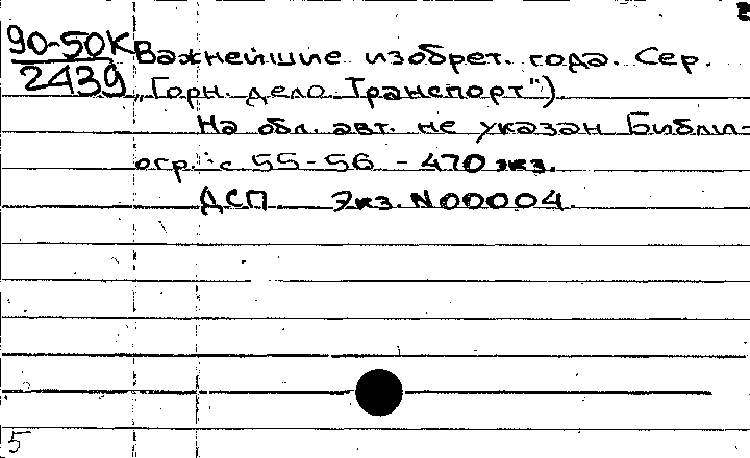 90-50К
2439
Важнейшие изобрет. года. Сер.
„Горн. дело. Транспорт").
На обл. авт. не указан Библи-
огр.: с 55-56 - 470 экз.
ДСП Экз. N 00004.
5